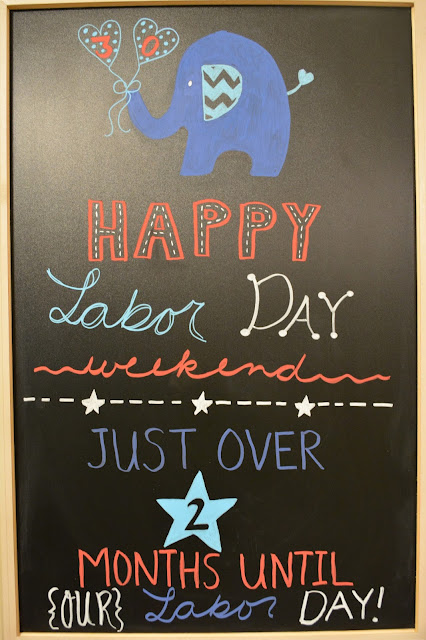 30
HAPPY
Labor DAY
weekend
JUST OVER
2
MONTHS UNTIL
{OUR} Labor DAY!